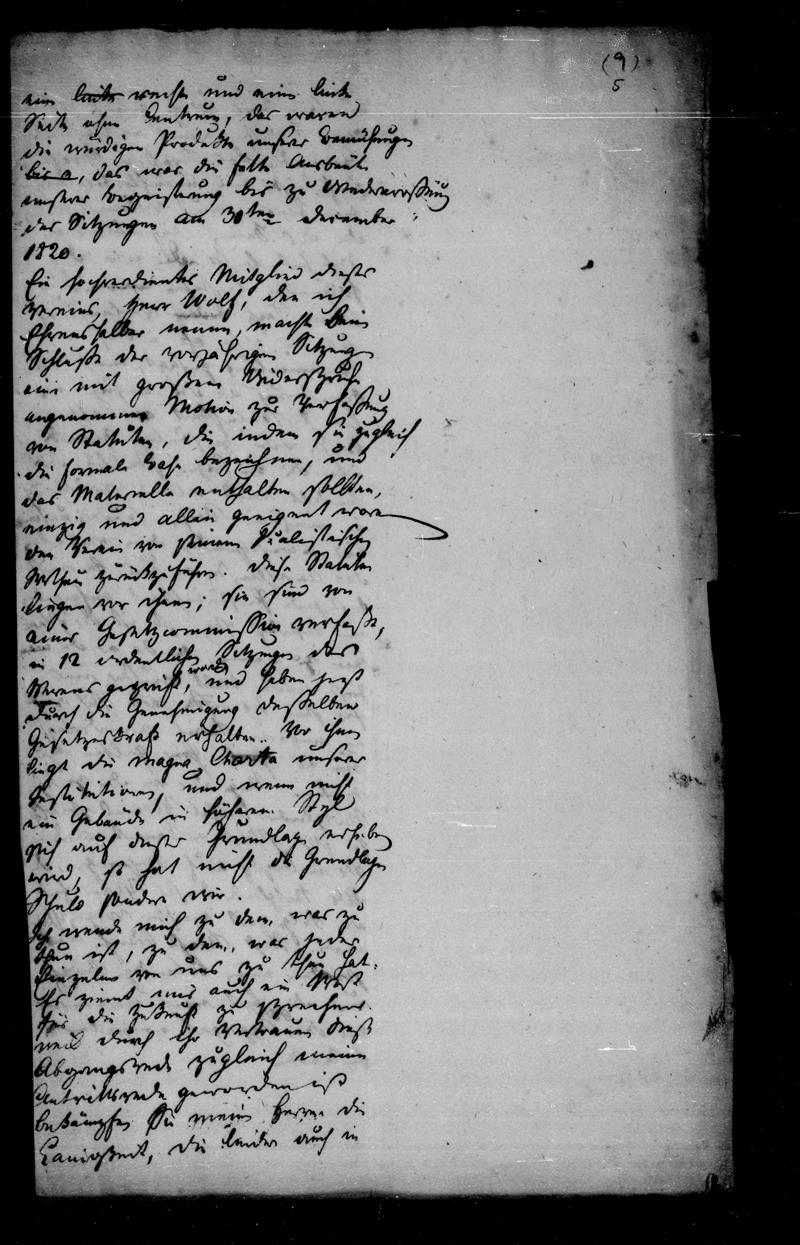 (9)
5
eine linke rechte und eine linke
Seite ohne Centrum, das waren
die würdigen Produkte unsrer Bemühungen
das war die fette Ausbeute
unserer Begeisterung bis zu Wiedereröffnung
der Sitzungen am 30ten December
1820.
Ein hochverdientes Mitglied dieses
Vereins, Herr Wolf, den ich
Ehrenhalber nenne, machte beim
Schluße der vorjährigen Sitzung
eine mit großem Widerspruche
angenommene Motion zur Verfassung
von Statuten, die indem sie zugleich
die formale Base bezeichnen, und
das Materielle enthalten sollten,
einzig und allein geeignet waren
den Verein von seinem dualistischen
zurückzuführen. Diese Statuten
liegen vor ihnen; sie sind von
einer Gesetzcommission verfaßt,
in 12 ordentlichen Sitzungen des
Vereins geprüft worden, und haben jetzt
durch die Genehmigung desselben
Gesetzeskraft erhalten. Vor ihnen
liegt die magna Charta unserer
Institutionen, und wenn nicht
ein Gebäude in höherem Styl
sich auf dieser Grundlage erheben
wird, so hat nicht die Grundlage
Schuld sondern wir.
Ich wende mich zu dem, was zu
thun ist, zu dem, was jeder
Einzelne von uns zu thun hat.
Es ziemt mir auch ein Wort
für die Zukunft zu sprechen
weil durch Ihr Vertrauen diese
Abgangsrede zugleich meine
Antrittsrede geworden ist
bekämpfen Sie meine Herren die
Lauigkeit, die leider auch in